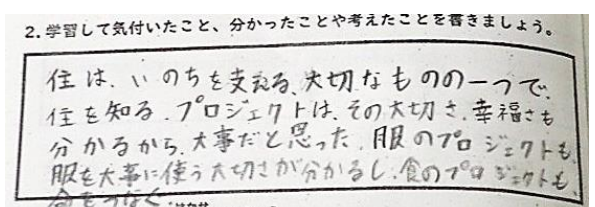 2. 学習して気付いたこと、分かったことや考えたことを書きましょう。
住は、いのちを支える、大切なものの一つで、
住を知る、プロジェクトは、その大切さ、幸福さも
分かるから、大事だと思った。服のプロジェクトも、
服を大事に使う大切さが分かるし、食のプロジェクトも、
命をつなぐ、